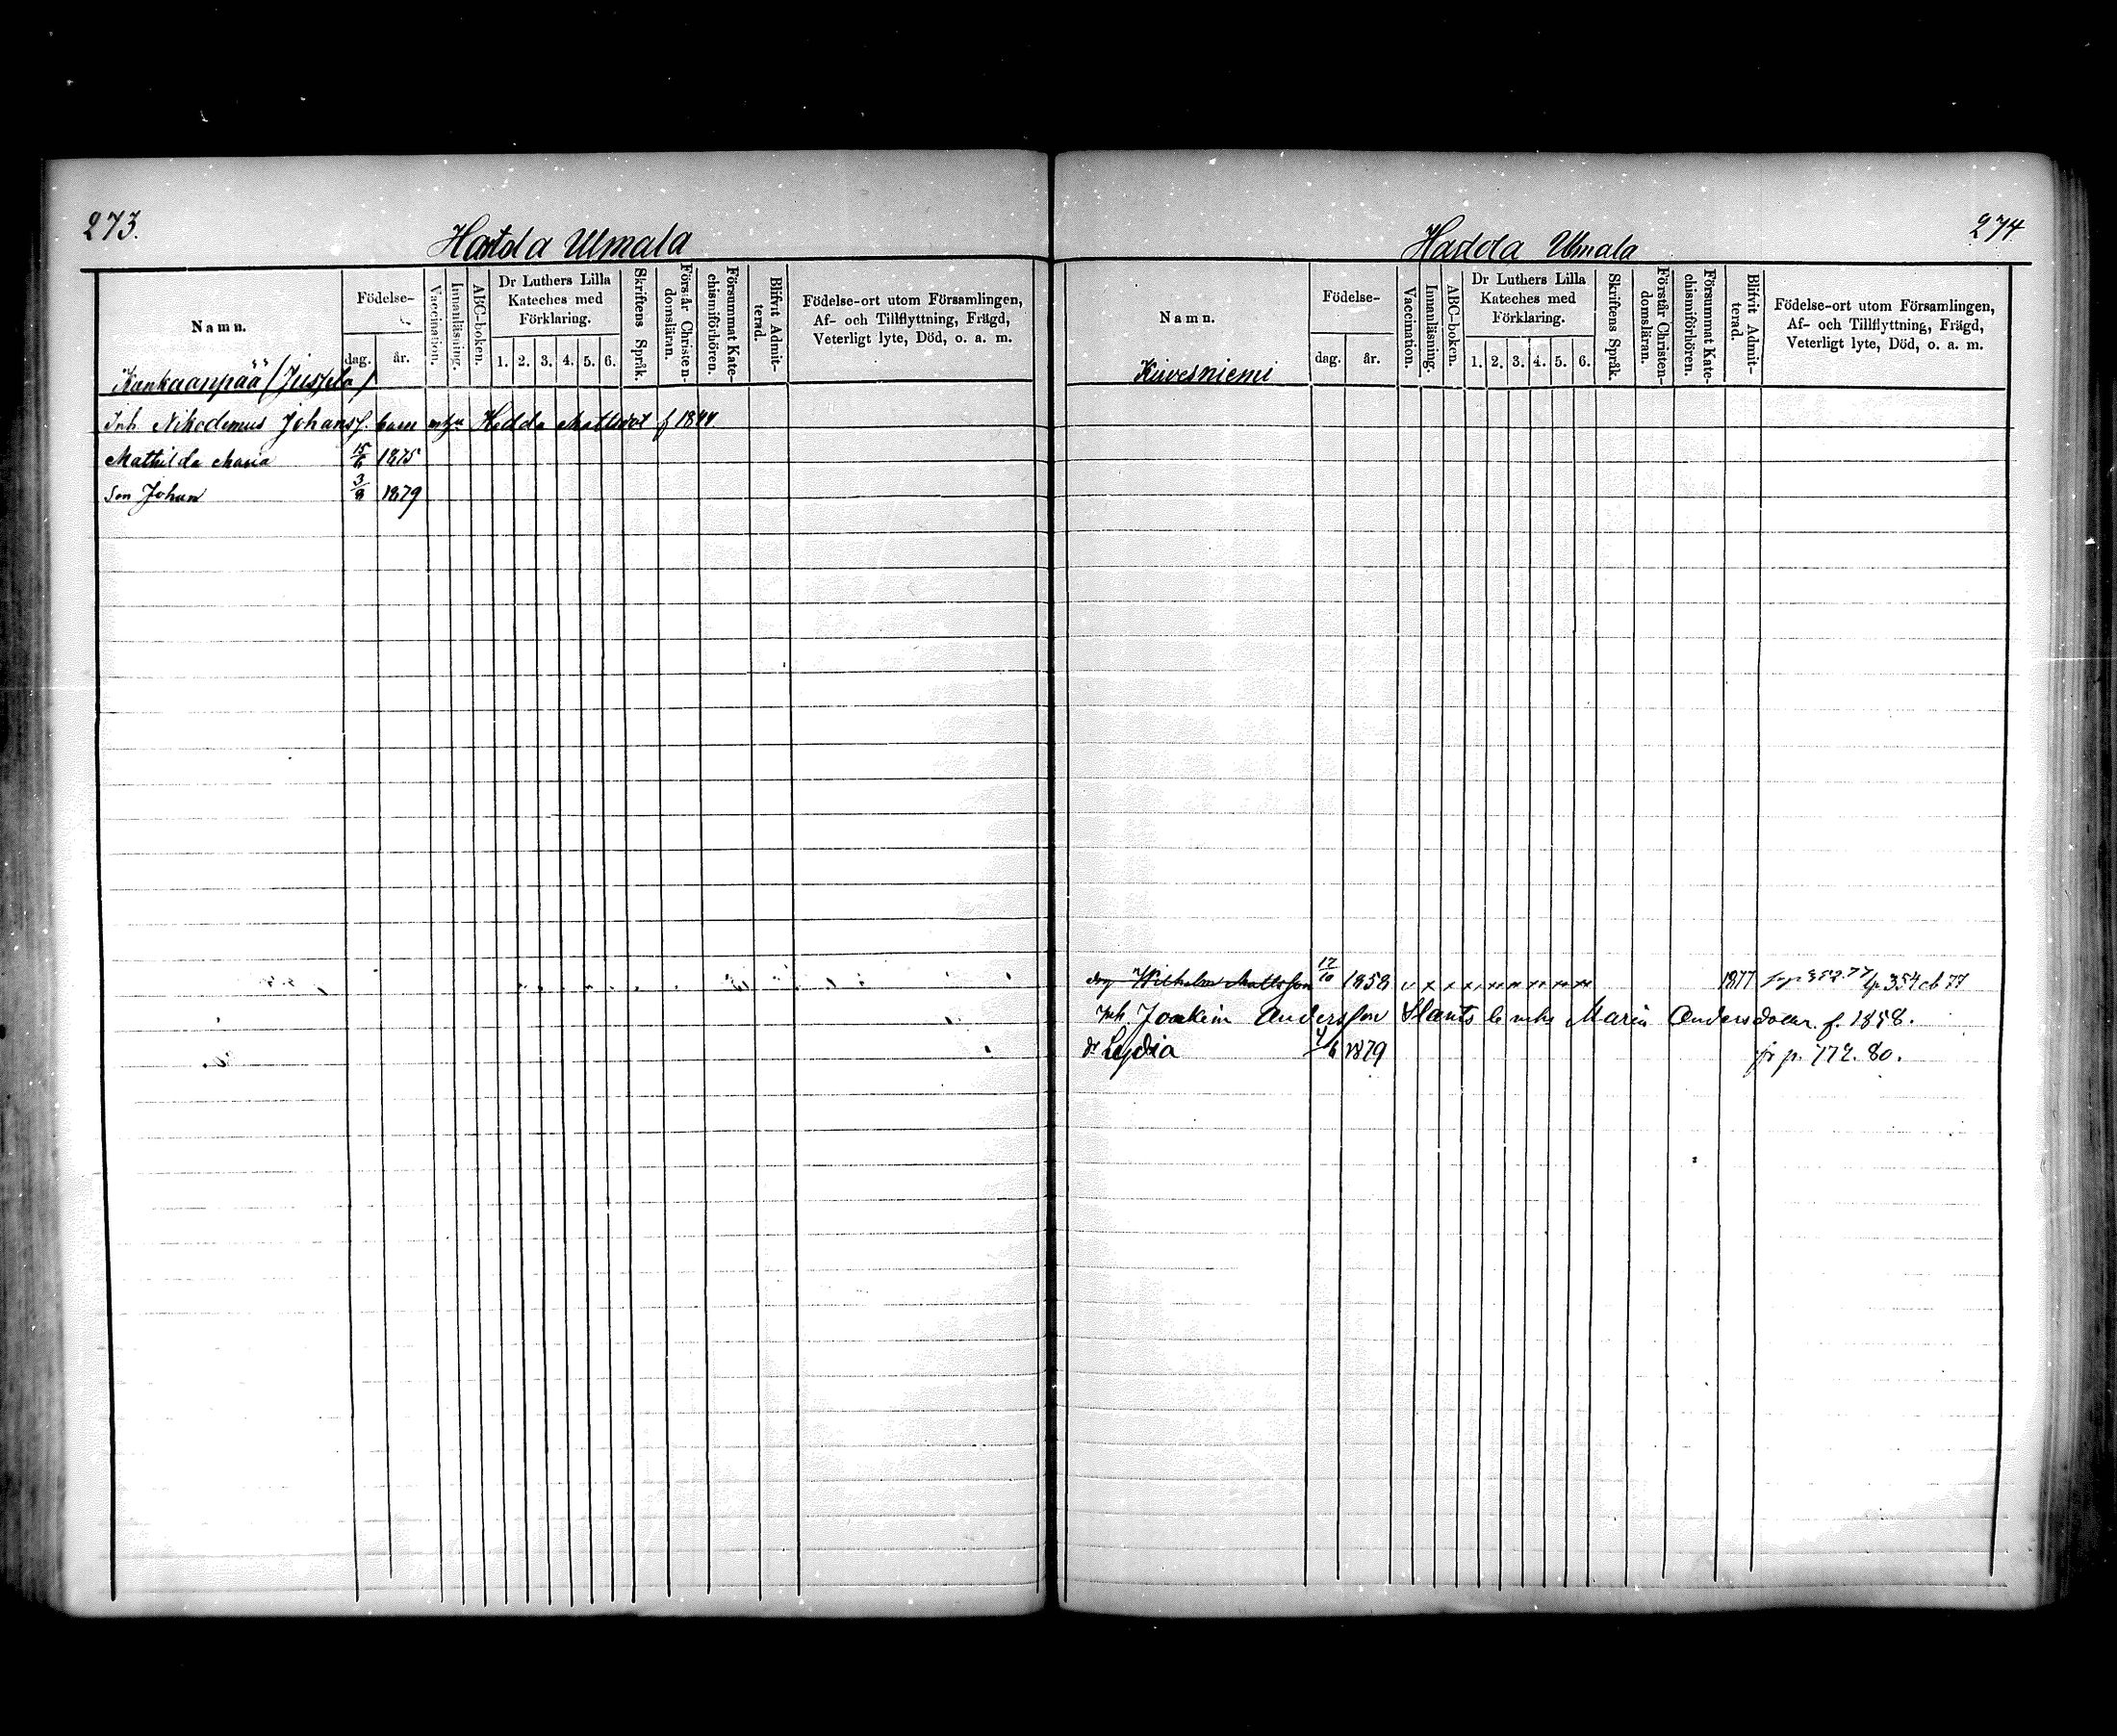 273.
Hadola Ulmala
Namn.
Födelse-
dag.
år.
Vaccination.
Innanläsning.
ABC-boken.
Dr Luthers Lilla
Kateches med
Förklaring.
1. 2. 3. 4. 5. 6.
Skriftens Språk.
Förstår Christen-
domsläran.
Försummat Kate-
chismiförhören.
Blifvit Admit-
terad.
Födelse-ort utom Församlingen,
Af- och Tillflyttning, Frägd,
Veterligt lyte, Död, o. a. m.
Kankaanpää (Jussila)
Inh. Nikodemus Johans f. barn Hedda f 1844
Mathilda Maria 15/6 1875
Son Johan 3/8 1879
274
Hadola Ulmala
Namn.
Födelse-
dag.
år.
Vaccination.
Innanläsning.
ABC-boken.
Dr Luthers Lilla
Kateches med
Förklaring.
1. 2. 3. 4. 5. 6.
Skriftens Språk.
Förstår Christen-
domsläran.
Försummat Kate-
chismiförhören.
Blifvit Admit-
terad.
Födelse-ort utom Församlingen,
Af- och Tillflyttning, Frägd,
Veterligt lyte, Död, o. a. m.
Kuvesniemi
Wilhelm Mattsson 17/10 1858 v x x x xx xx xx xx xx 1877 354 77
Inh Joakim Andersson Slants enka Maria Andersdotter f. 1858.
dr Lydia 4/6 1879 fr p. 772. 80.